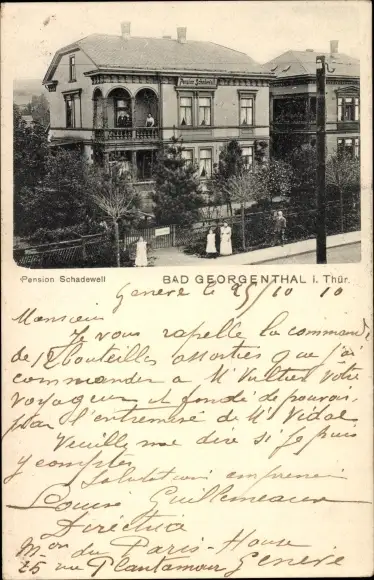 Pension Schadewell
BAD GEORGENTHAL i. Thür.
Genève le 25/10 10
Monsieur
Je vous rapelle la commande
de 12 bouteilles assorties que j'ai
commander a Mr Vulther Votre
voyageur et fondé de pouvoir,
par l'entremise de Mr Vidal
Veuillez me dire si je puis
y compter
Salutations empressées
Louise Guillemeaux
Directrice
Mon du Paris-House
25 rue Plantamour Genève